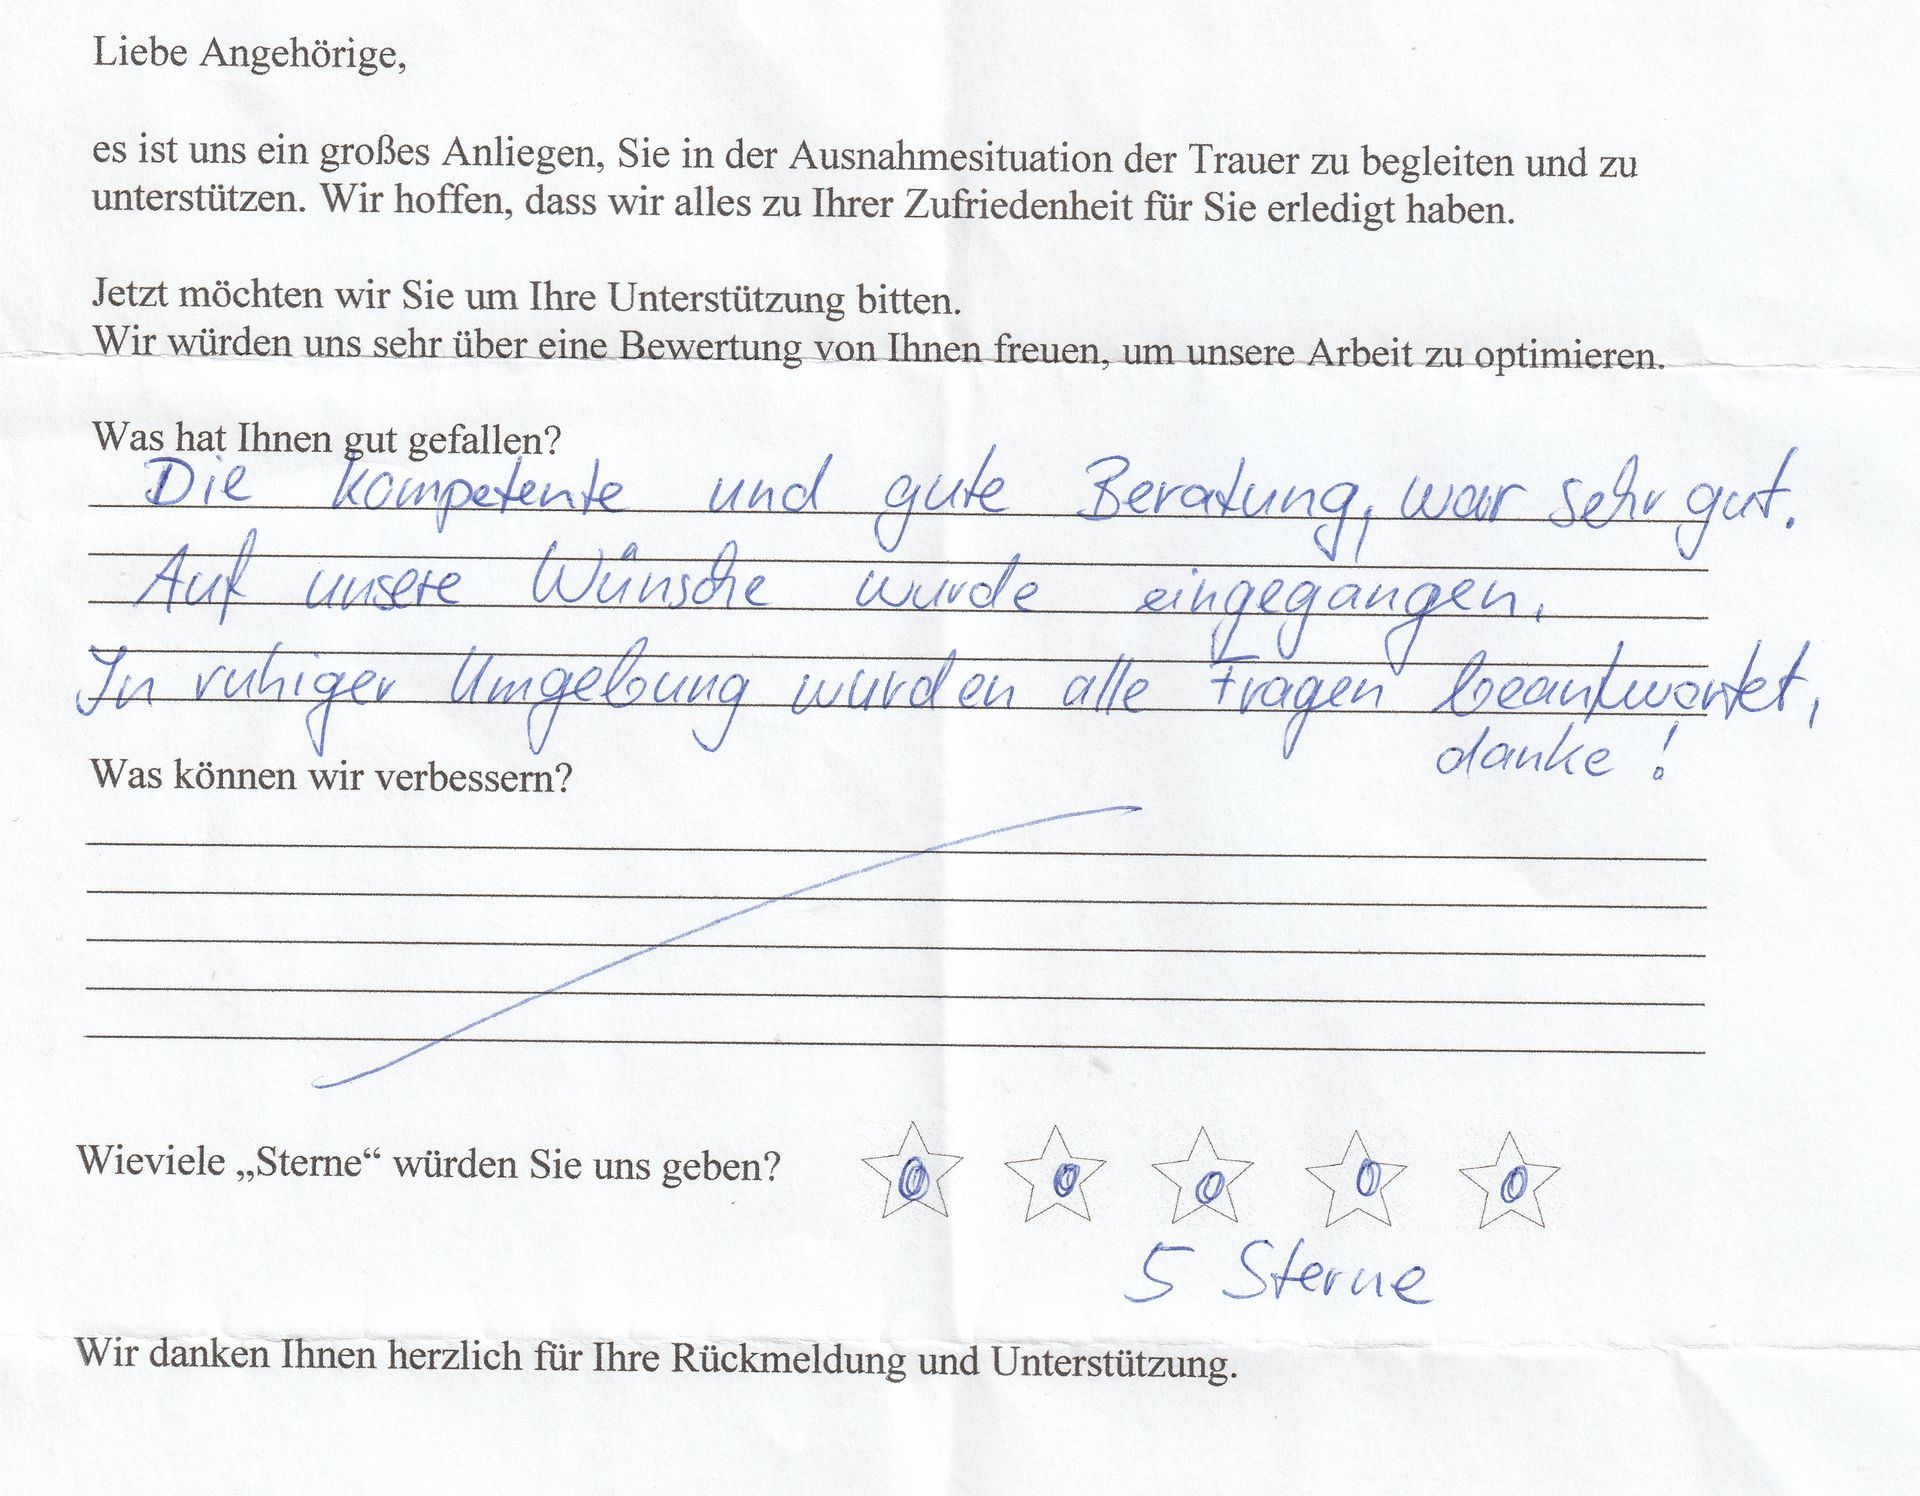 Liebe Angehörige,
es ist uns ein großes Anliegen, Sie in der Ausnahmesituation der Trauer zu begleiten und zu
unterstützen. Wir hoffen, dass wir alles zu Ihrer Zufriedenheit für Sie erledigt haben.
Jetzt möchten wir Sie um Ihre Unterstützung bitten.
Wir würden uns sehr über eine Bewertung von Ihnen freuen, um unsere Arbeit zu optimieren.
Was hat Ihnen gut gefallen?
Die kompetente und gute Beratung, war sehr gut.
Auf unsere Wünsche wurde eingegangen.
In ruhiger Umgebung wurden alle Fragen beantwortet,
danke!
Was können wir verbessern?
Wieviele „Sterne“ würden Sie uns geben?
5 Sterne
Wir danken Ihnen herzlich für Ihre Rückmeldung und Unterstützung.